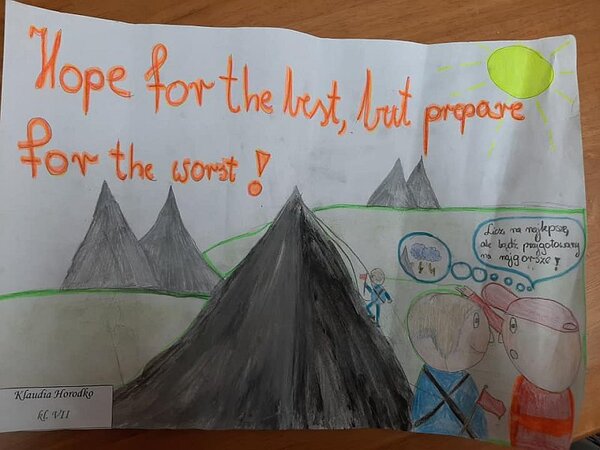 Hope for the best, but prepare
for the worst!
Licz na najlepsze,
ale bądź przygotowany
na najgorsze!
Klaudia Horodko
kl. VII